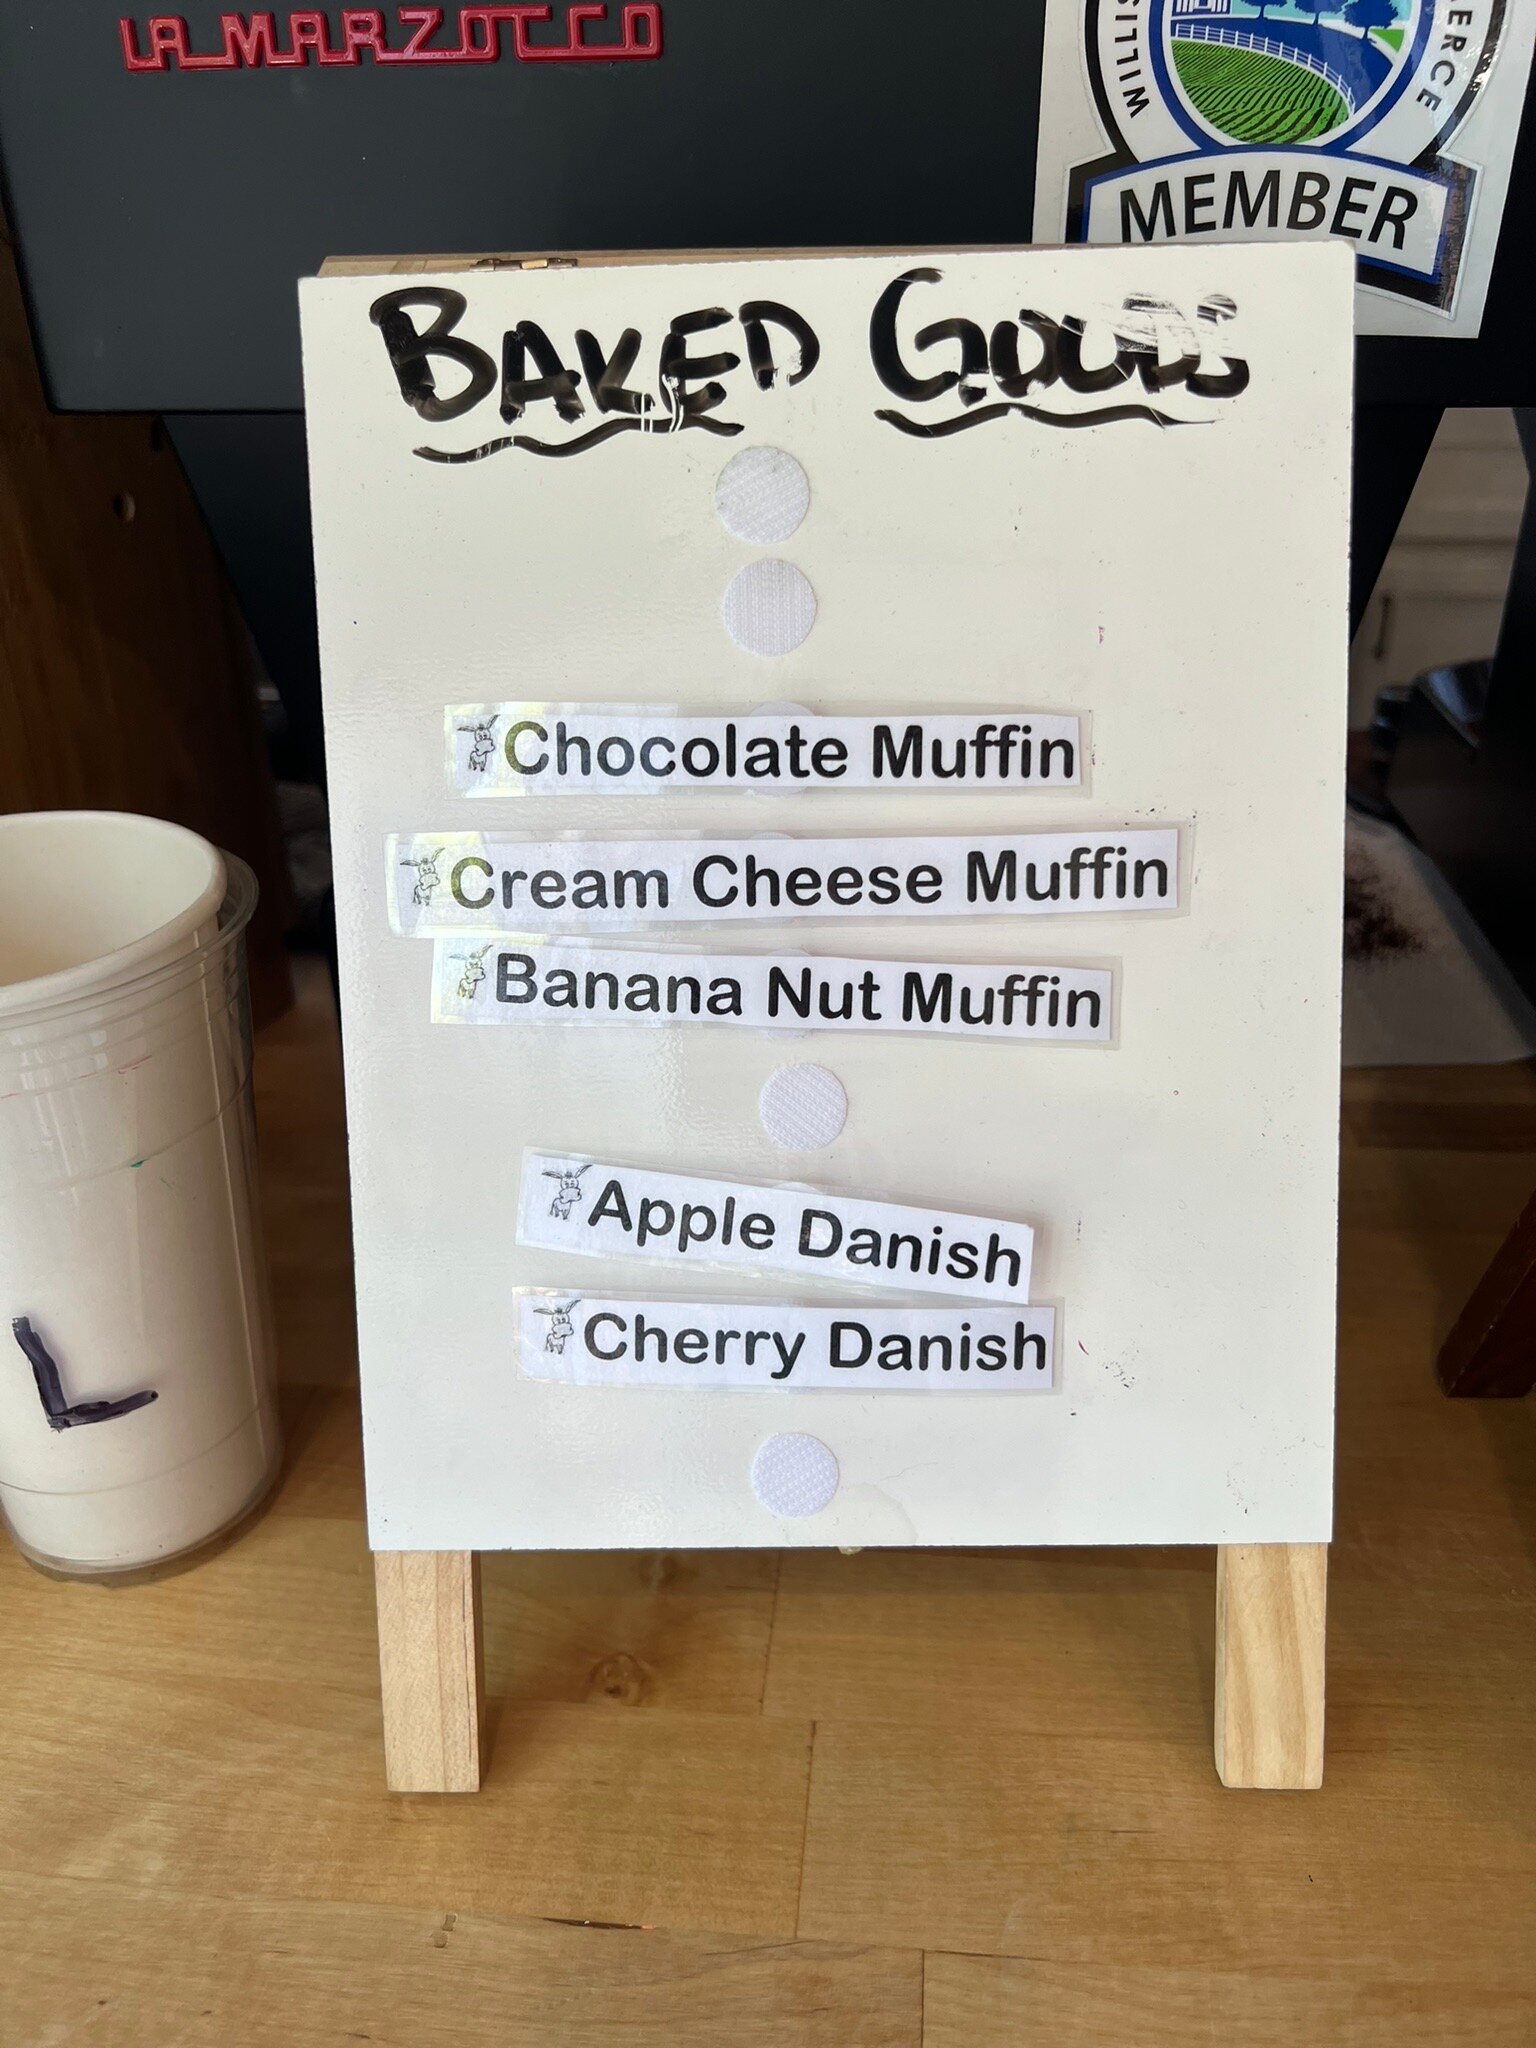 LA MARZOCCO
WILLIS
ERCE
MEMBER
BAKED GOODS
Chocolate Muffin
Cream Cheese Muffin
Banana Nut Muffin
Apple Danish
Cherry Danish
L